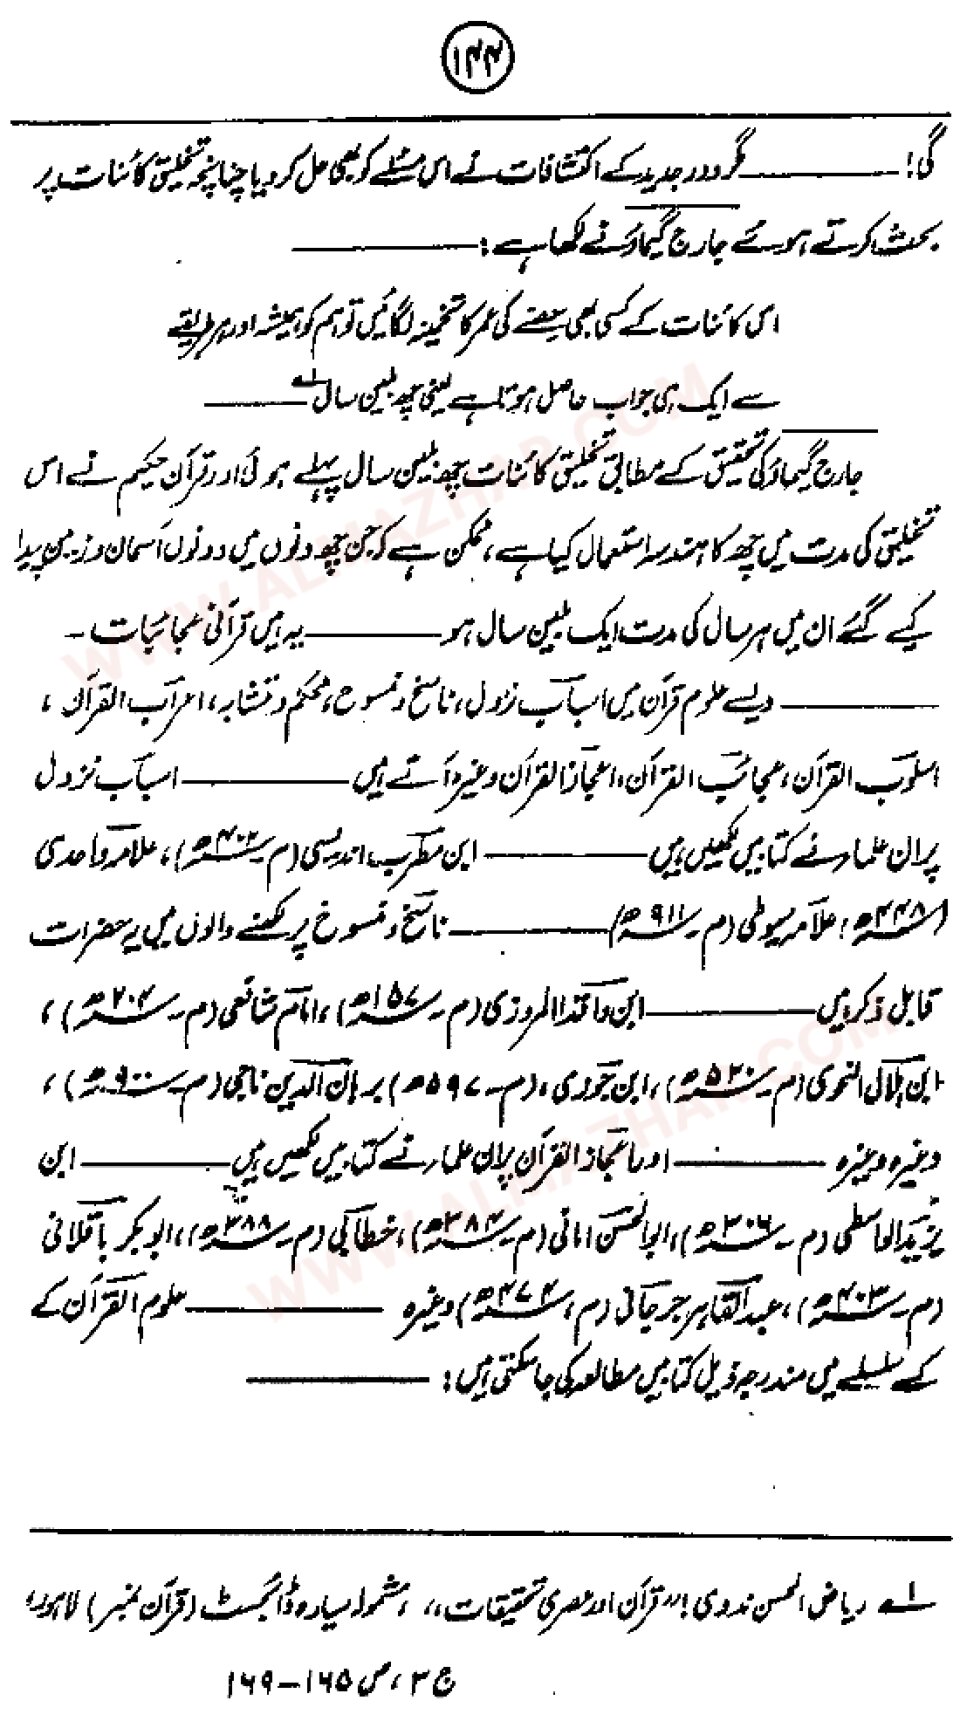 ۱۴۴
گی! ــــــــــ مگر دورِ جدید کے اکتشافات نے اس مسئلے کو بھی حل کر دیا چنانچہ تخلیق کائنات پر
بحث کرتے ہوئے جارج گیماؤ نے لکھا ہے: ــــــــــ
اس کائنات کے کسی بھی حصّے کی عمر کا تخمینہ لگائیں تو ہم کو ہمیشہ اور ہر طریقے
سے ایک ہی جواب حاصل ہوتا ہے یعنی چھ بلین سال ۱؎ ــــــــــ
جارج گیماؤ کی تحقیق کے مطابق تخلیق کائنات چھ بلین سال پہلے ہوئی اور قرآن حکیم نے اس
تخلیق کی مدت میں چھ کا ہندسہ استعمال کیا ہے، ممکن ہے کہ جن چھ دنوں میں دونوں آسمان و زمین پیدا
کیے گئے ان میں ہر سال کی مدت ایک بلین سال ہو ــــــــــ یہ ہیں قرآنی عجائبات ۔
ــــــــــ ویسے علوم قرآن میں اسباب نزول، ناسخ و منسوخ، محکم و متشابہ، اعراب القرآن،
اسلوب القرآن، عجائب القرآن، اعجاز القرآن وغیرہ آتے ہیں ــــــــــ اسباب نزول
پر ان علماء نے کتابیں لکھیں ہیں ــــــــــ ابن مطرب اندلسی (م ۔ ۴۰۲ھ)، علامہ واحدی
(۴۴۸ھ)، علامہ سیوطی (م ۔ ۹۱۱ھ) ــــــــــ ناسخ و منسوخ پر لکھنے والوں میں یہ حضرات
قابل ذکر ہیں ــــــــــ ابن واقد المروزی (م ۔ ۱۵۷ھ)، امام شافعی (م ۔ ۲۰۴ھ)،
ابن ہلال النحوی (م ۔ ۵۲۰ھ)، ابن جوزی، (م ۔ ۵۹۷ھ) برہان الدین ناجی (م ۔ ۹۰۰ھ)،
وغیرہ وغیرہ ــــــــــ اور اعجاز القرآن پر ان علماء نے کتابیں لکھیں ہیں ــــــــــ ابن
یزید الواسطی (م ۔ ۳۰۶ھ)، ابو الحسن امانی (م ۔ ۳۸۴ھ)، خطابی (م ۔ ۳۸۸ھ)، ابو بکر باقلانی
(م ۔ ۴۰۳ھ)، عبد القاہر جرجانی (م، ۴۷۴ھ) وغیرہ ــــــــــ علوم القرآن کے
کے سلسلے میں مندرجہ ذیل کتابیں مطالعہ کی جا سکتی ہیں: ــــــــــ
۱؎ ریاض الحسن ندوی: "قرآن اور عصری تحقیقات"، مشمولہ سیارہ ڈائجسٹ (قرآن نمبر) لاہور،
ج ۳، ص ۱۶۵ – ۱۶۹
WWW.ALMAZHAR.COM
WWW.ALMAZHAR.COM